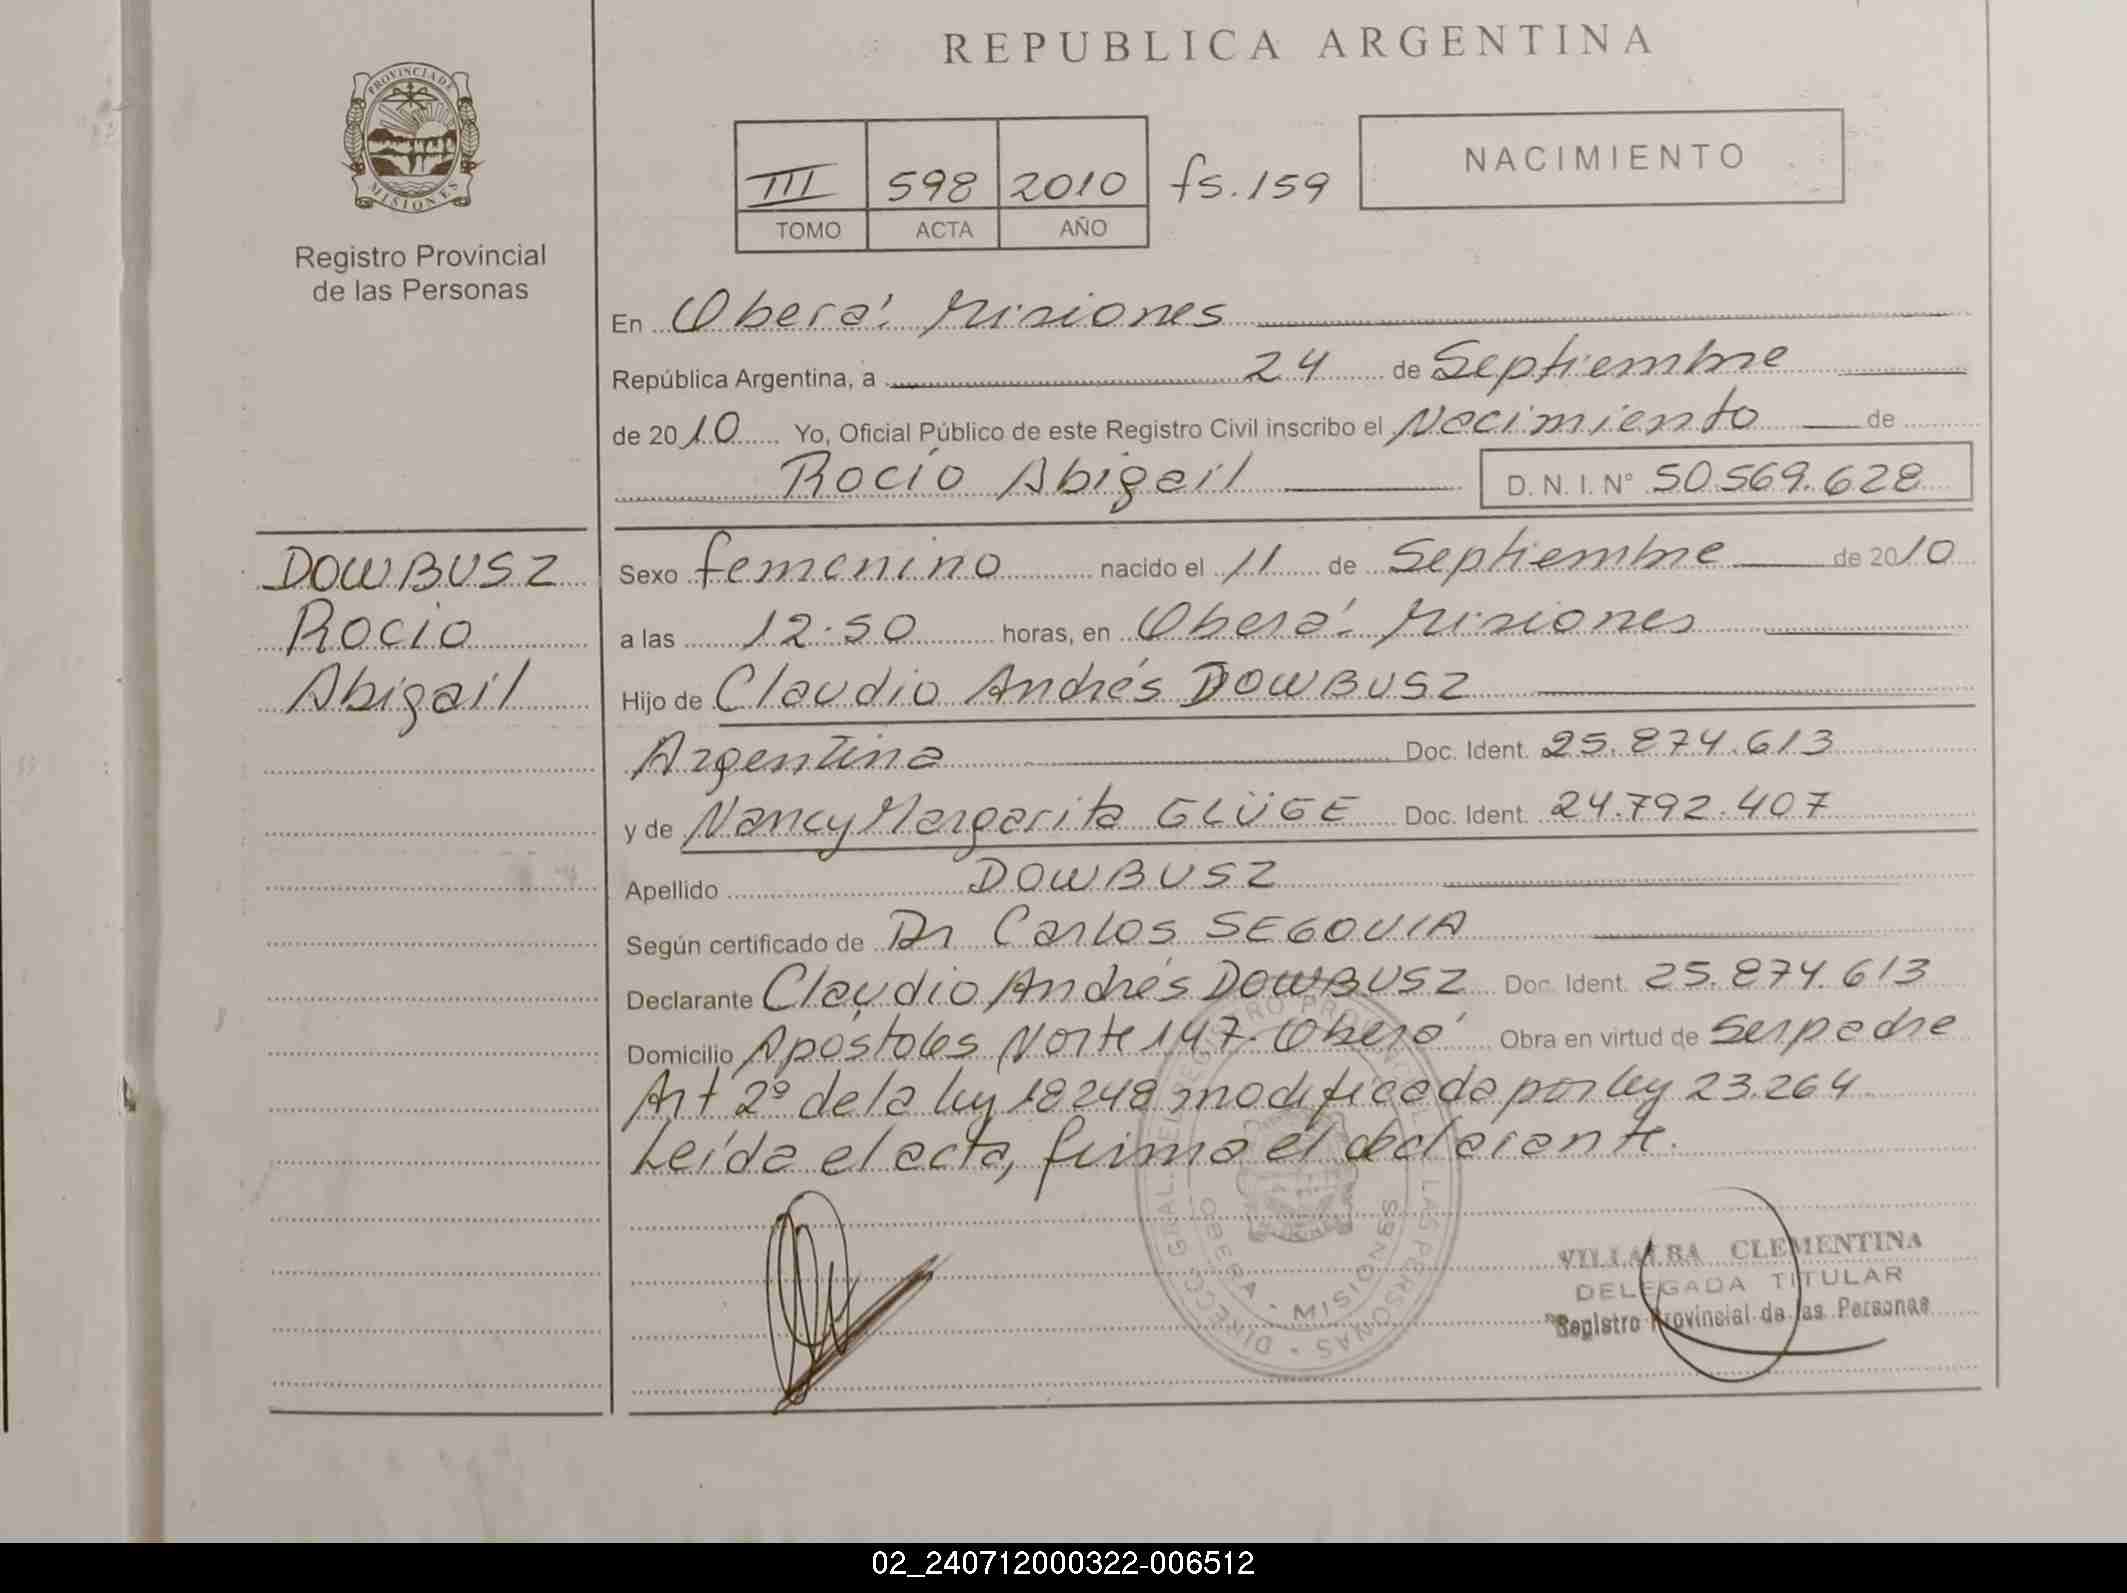 REPUBLICA ARGENTINA
PROVINCIA DE
MISIONES
Registro Provincial
de las Personas
III 598 2010 fs. 159
TOMO ACTA AÑO
NACIMIENTO
En Oberá. Misiones
República Argentina, a 24 de Septiembre
de 2010 Yo, Oficial Público de este Registro Civil inscribo el Nacimiento de
Rocío Abigail D. N. I. N° 50.569.628
DOWBUSZ
Rocío
Abigail
Sexo femenino nacido el 11 de Septiembre de 2010
a las 12.50 horas, en Oberá. Misiones
Hijo de Claudio Andrés DOWBUSZ
Argentina Doc. Ident. 25.874.613
y de Nancy Margarita GLÜGE Doc. Ident. 24.792.407
Apellido DOWBUSZ
Según certificado de Dr Carlos SEGOVIA
Declarante Claudio Andrés DOWBUSZ Doc. Ident. 25.874.613
Domicilio Apóstoles Norte 147. Oberá Obra en virtud de Ser padre
Art 2º de la ley 18248 modificada por ley 23.264
Leída el acta, firma el declarante.
DIRECC. GRAL. DEL REGISTRO PROVINCIAL DE LAS PERSONAS
OBERA - MISIONES
VILLALBA CLEMENTINA
DELEGADA TITULAR
Registro Provincial de las Personas
02_240712000322-006512